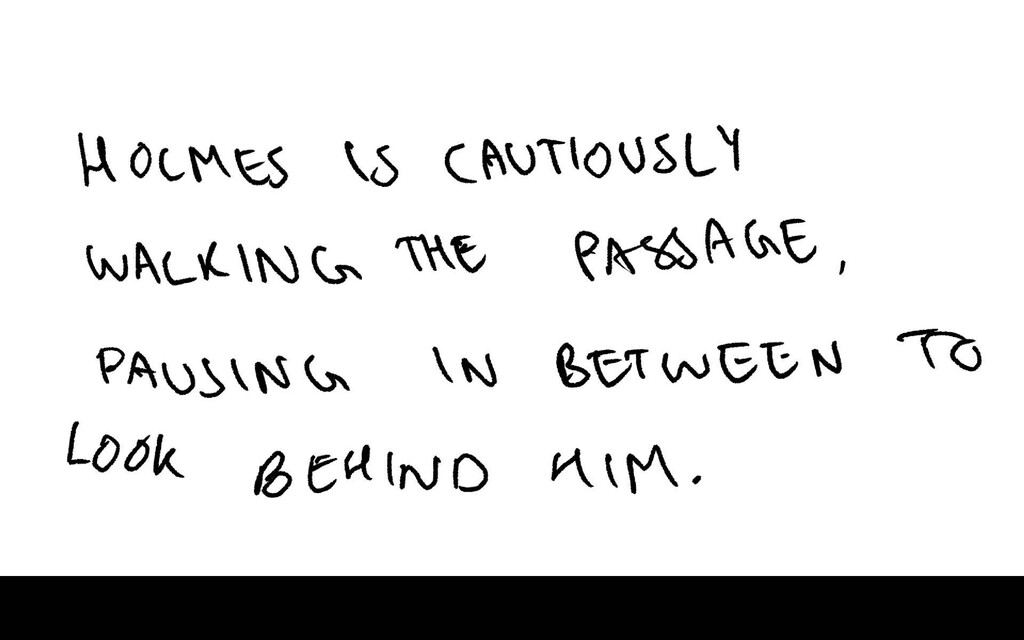 HOLMES IS CAUTIOUSLY
WALKING THE PASSAGE,
PAUSING IN BETWEEN TO
LOOK BEHIND HIM.